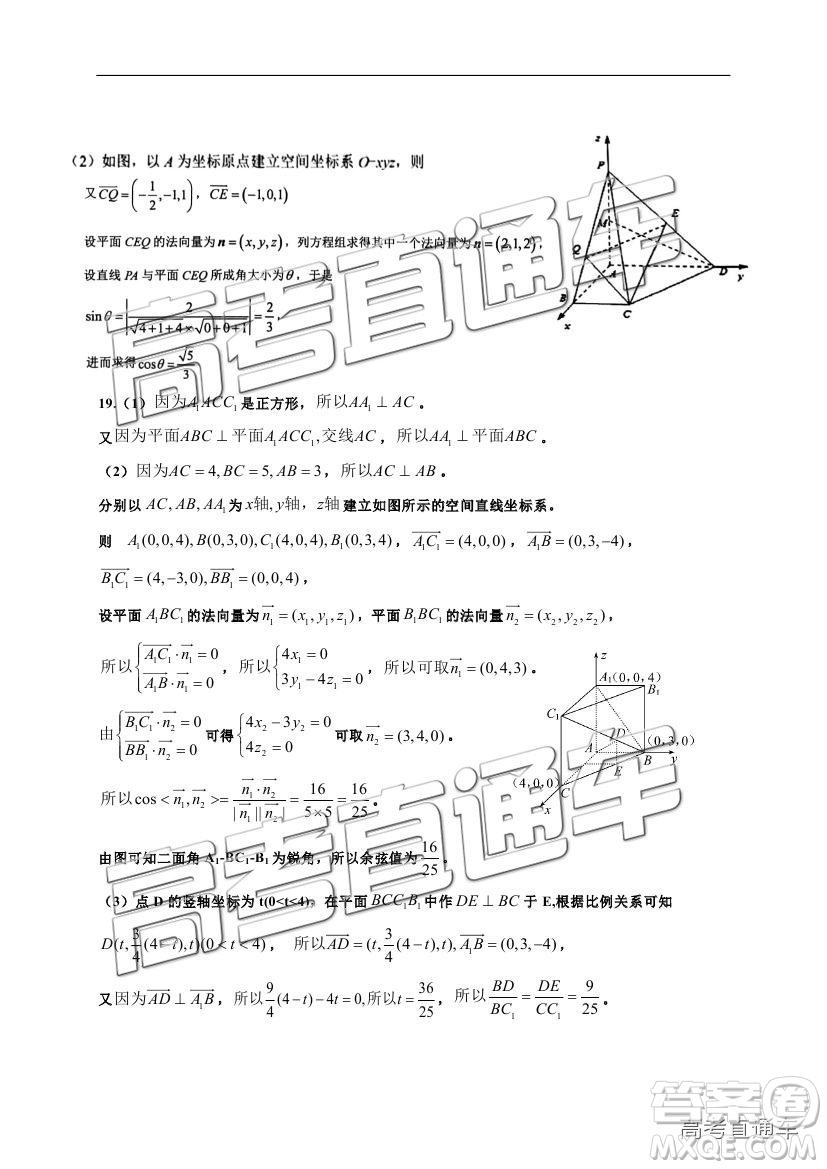 （2）如图，以 A 为坐标原点建立空间坐标系 O-xyz，则
又 \overrightarrow{CQ}=(-\frac{1}{2},-1,1)，\overrightarrow{CE}=(-1,0,1)
设平面 CEQ 的法向量为 n=(x,y,z)，列方程组求得其中一个法向量为 n=(2,1,2)，
设直线 PA 与平面 CEQ 所成角大小为 θ，于是
sinθ=|\frac{2}{\sqrt{4+1+4}×\sqrt{0+0+1}}|=\frac{2}{3}，
进而求得 cosθ=\frac{\sqrt{5}}{3}
z
P
M
E
Q
A
D
y
B
C
x
19.（1）因为A₁ACC₁是正方形，所以AA₁⊥AC。
又因为平面ABC⊥平面A₁ACC₁,交线AC，所以AA₁⊥平面ABC。
（2）因为AC=4,BC=5,AB=3，所以AC⊥AB。
分别以 AC,AB,AA₁为x轴,y轴，z轴建立如图所示的空间直线坐标系。
则 A₁(0,0,4),B(0,3,0),C₁(4,0,4),B₁(0,3,4)，\overrightarrow{A₁C₁}=(4,0,0)，\overrightarrow{A₁B}=(0,3,-4)，
\overrightarrow{B₁C₁}=(4,-3,0),\overrightarrow{BB₁}=(0,0,4)，
设平面 A₁BC₁的法向量为\overrightarrow{n₁}=(x₁,y₁,z₁)，平面 B₁BC₁的法向量\overrightarrow{n₂}=(x₂,y₂,z₂)，
所以{\overrightarrow{A₁C₁}·\overrightarrow{n₁}=0 \overrightarrow{A₁B}·\overrightarrow{n₁}=0，所以{4x₁=0 3y₁-4z₁=0，所以可取\overrightarrow{n₁}=(0,4,3)。
由{\overrightarrow{B₁C₁}·\overrightarrow{n₂}=0 \overrightarrow{BB₁}·\overrightarrow{n₂}=0 可得{4x₂-3y₂=0 4z₂=0 可取\overrightarrow{n₂}=(3,4,0)。
所以cos<\overrightarrow{n₁},\overrightarrow{n₂}>=\frac{\overrightarrow{n₁}·\overrightarrow{n₂}}{|\overrightarrow{n₁}||\overrightarrow{n₂}|}=\frac{16}{5×5}=\frac{16}{25}。
由图可知二面角 A₁-BC₁-B₁ 为锐角，所以余弦值为\frac{16}{25}。
z
A₁(0,0,4)
B₁
C₁
D
A
(0,3,0)
B
y
E
(4,0,0)
C
x
（3）点 D 的竖轴坐标为 t(0<t<4)，在平面BCC₁B₁中作DE⊥BC于 E,根据比例关系可知
D(t,\frac{3}{4}(4-t),t)(0<t<4)， 所以\overrightarrow{AD}=(t,\frac{3}{4}(4-t),t),\overrightarrow{A₁B}=(0,3,-4)，
又因为\overrightarrow{AD}⊥\overrightarrow{A₁B}，所以\frac{9}{4}(4-t)-4t=0,所以t=\frac{36}{25}，所以\frac{BD}{BC₁}=\frac{DE}{CC₁}=\frac{9}{25}。
高考直通车
高考直通车
答案卷
高考直通车
MXQE.COM